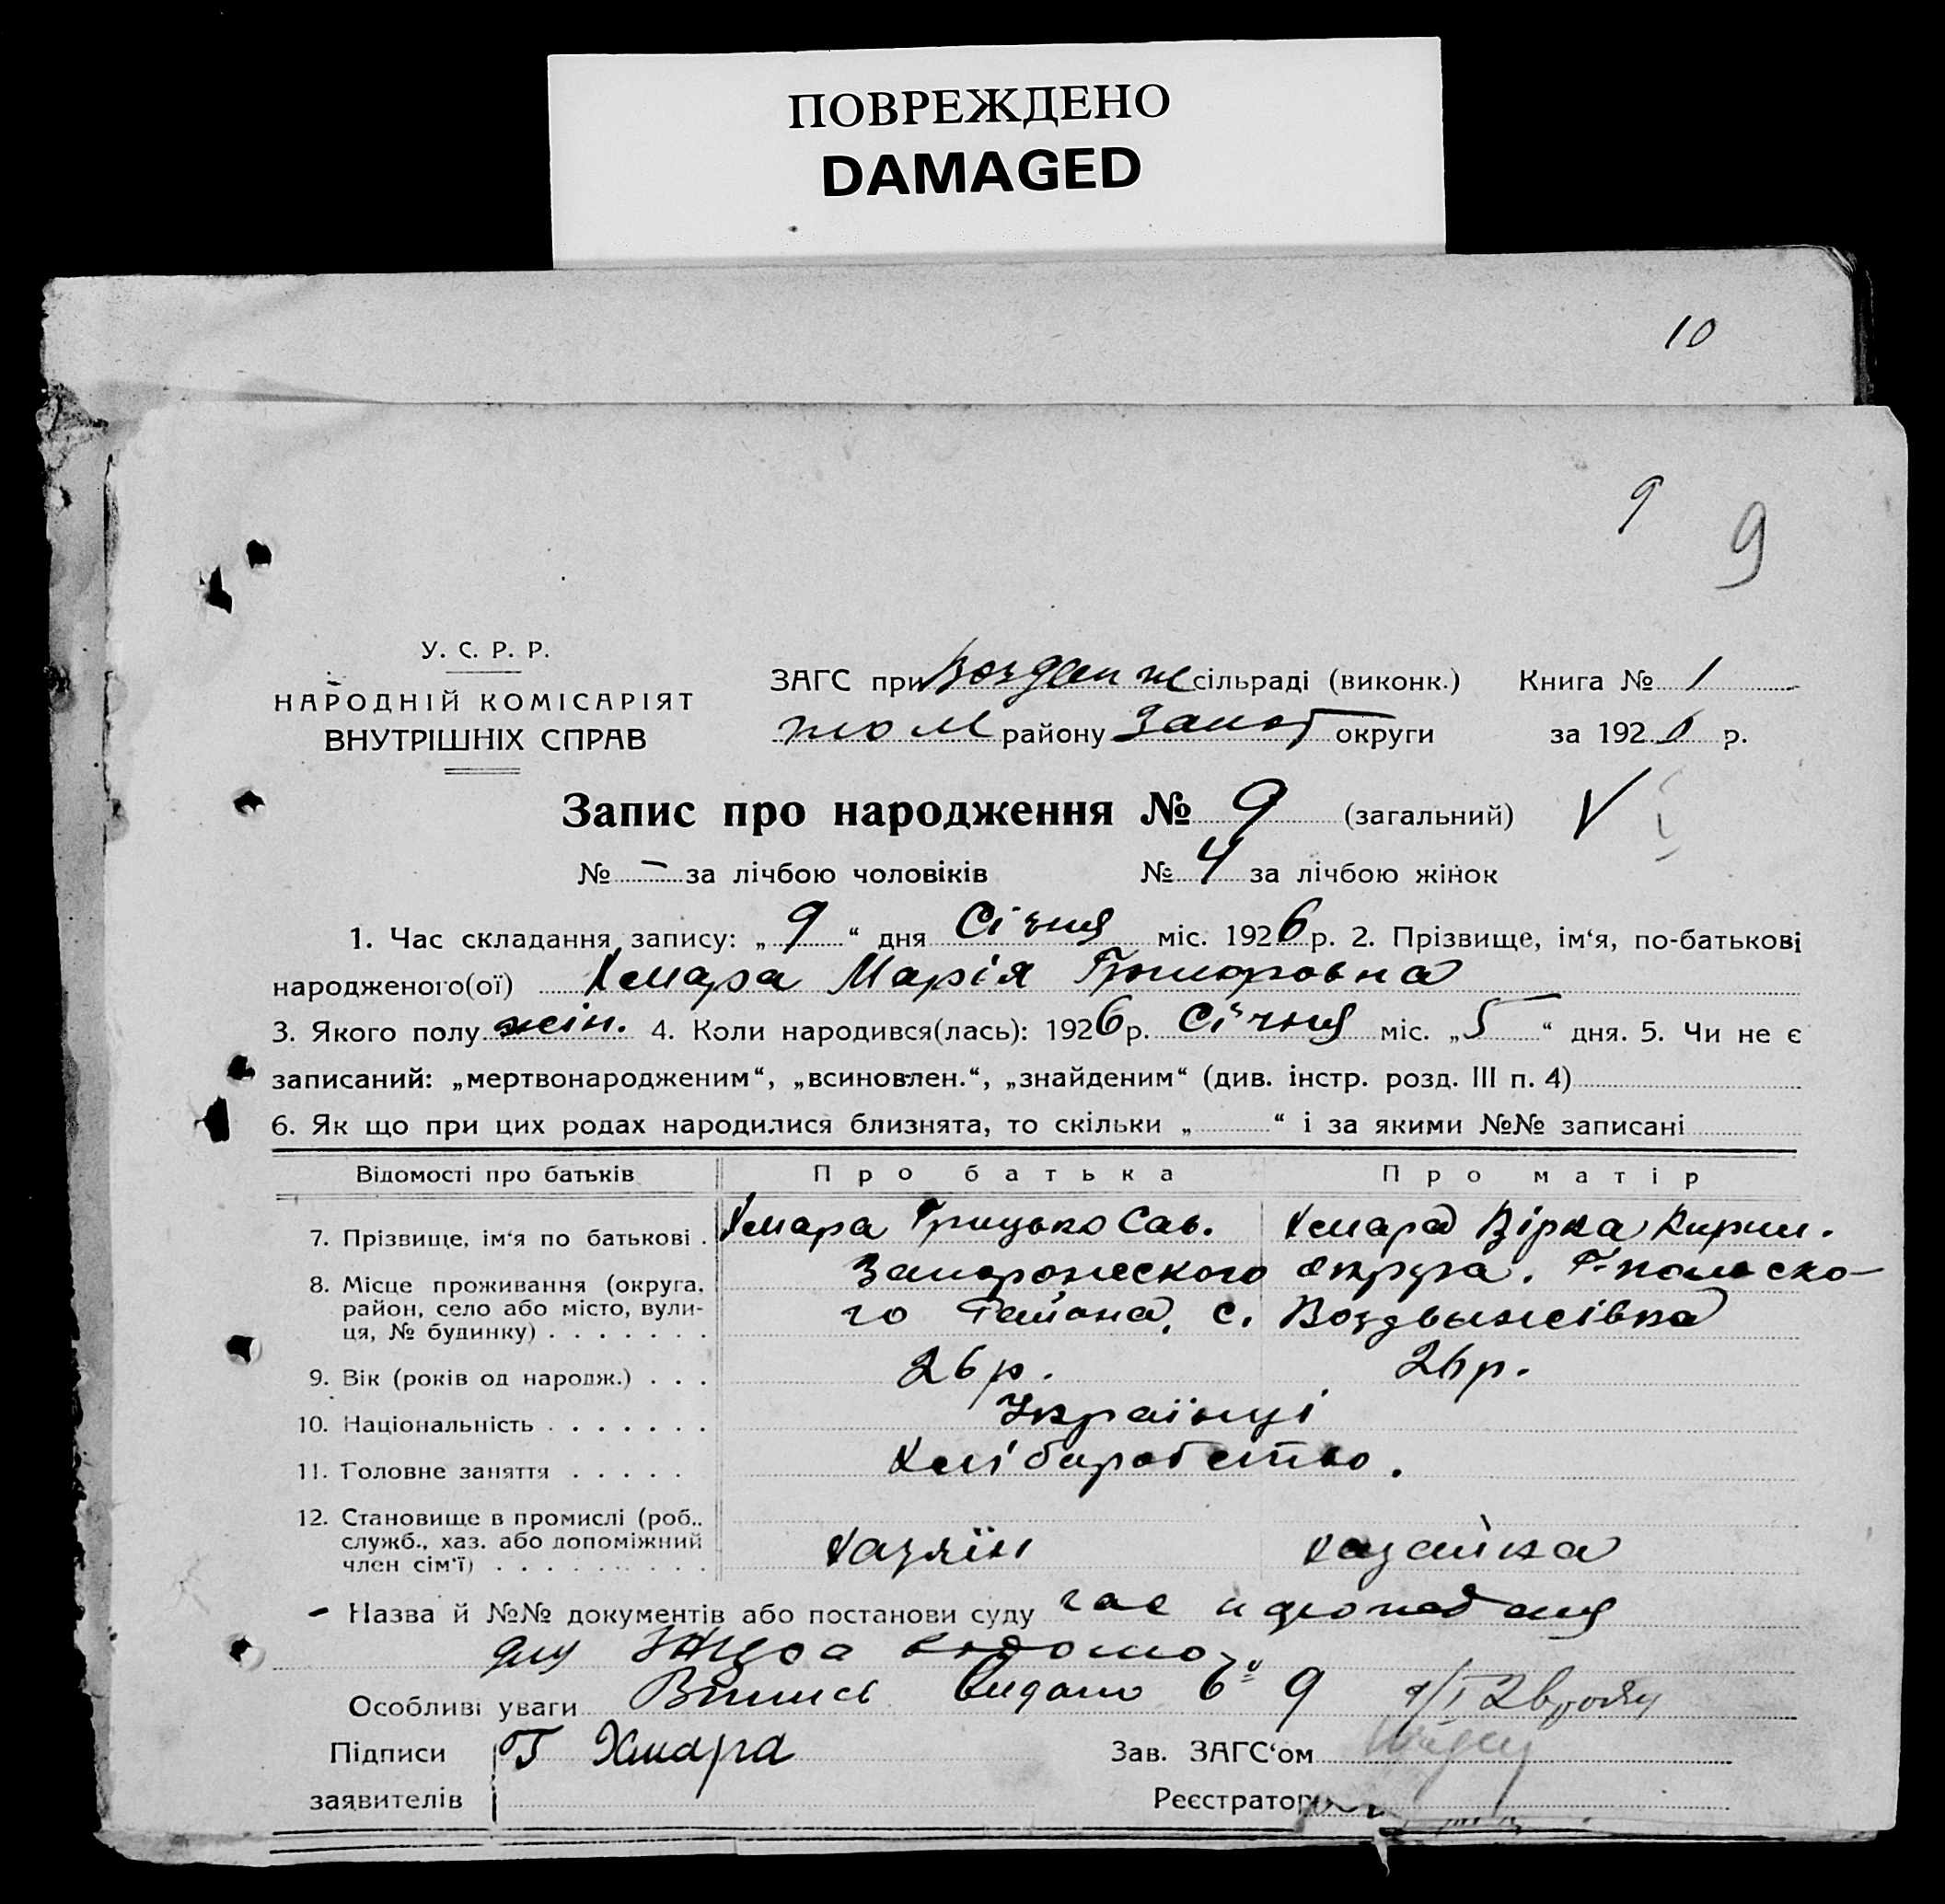 ПОВРЕЖДЕНО
DAMAGED
10
9
9
У. С. Р. Р.
НАРОДНІЙ КОМІСАРІЯТ
ВНУТРІШНІХ СПРАВ
ЗАГС при Воздвиж сільраді (виконк.) Книга № 1
району Запор округи за 1926 р.
Запис про народження № 9 (загальний) V
№ – за лічбою чоловіків № 4 за лічбою жінок
1. Час складання запису: „ 9 “ дня Січня міс. 1926 р. 2. Прізвище, ім‘я, по-батькові
народженого(ої) Хмара Марія Григоровна
3. Якого полу жін. 4. Коли народився(лась): 1926 р. Січня міс. „ 5 “ дня. 5. Чи не є
записаний: „мертвонародженим“, „всиновлен.“, „знайденим“ (див. інстр. розд. III п. 4)
6. Як що при цих родах народилися близнята, то скільки „ “ і за якими №№ записані
Відомості про батьків Про батька Про матір
7. Прізвище, ім‘я по батькові . Хмара Грицько Сав. Хмара Вірка Кирил.
8. Місце проживання (округа, Запорожского округа, Г-польско-
район, село або місто, вули- го Района, с. Воздвыжівка
ця, № будинку) . . . . . . .
9. Вік (років од народж.) . . . 26 р. 26 р.
10. Національність . . . . . . . Українці
11. Головне заняття . . . . . Хліборобство.
12. Становище в промислі (роб.,
служб., хаз. або допоміжний Хазяїн хазайка
член сім‘ї) . . . . . . . . .
– Назва й №№ документів або постанови суду
для ЗАГСа
Особливі уваги Випись видано 9 9/I 26 року
Підписи Г Хмара Зав. ЗАГС‘ом
заявителів Реєстратор